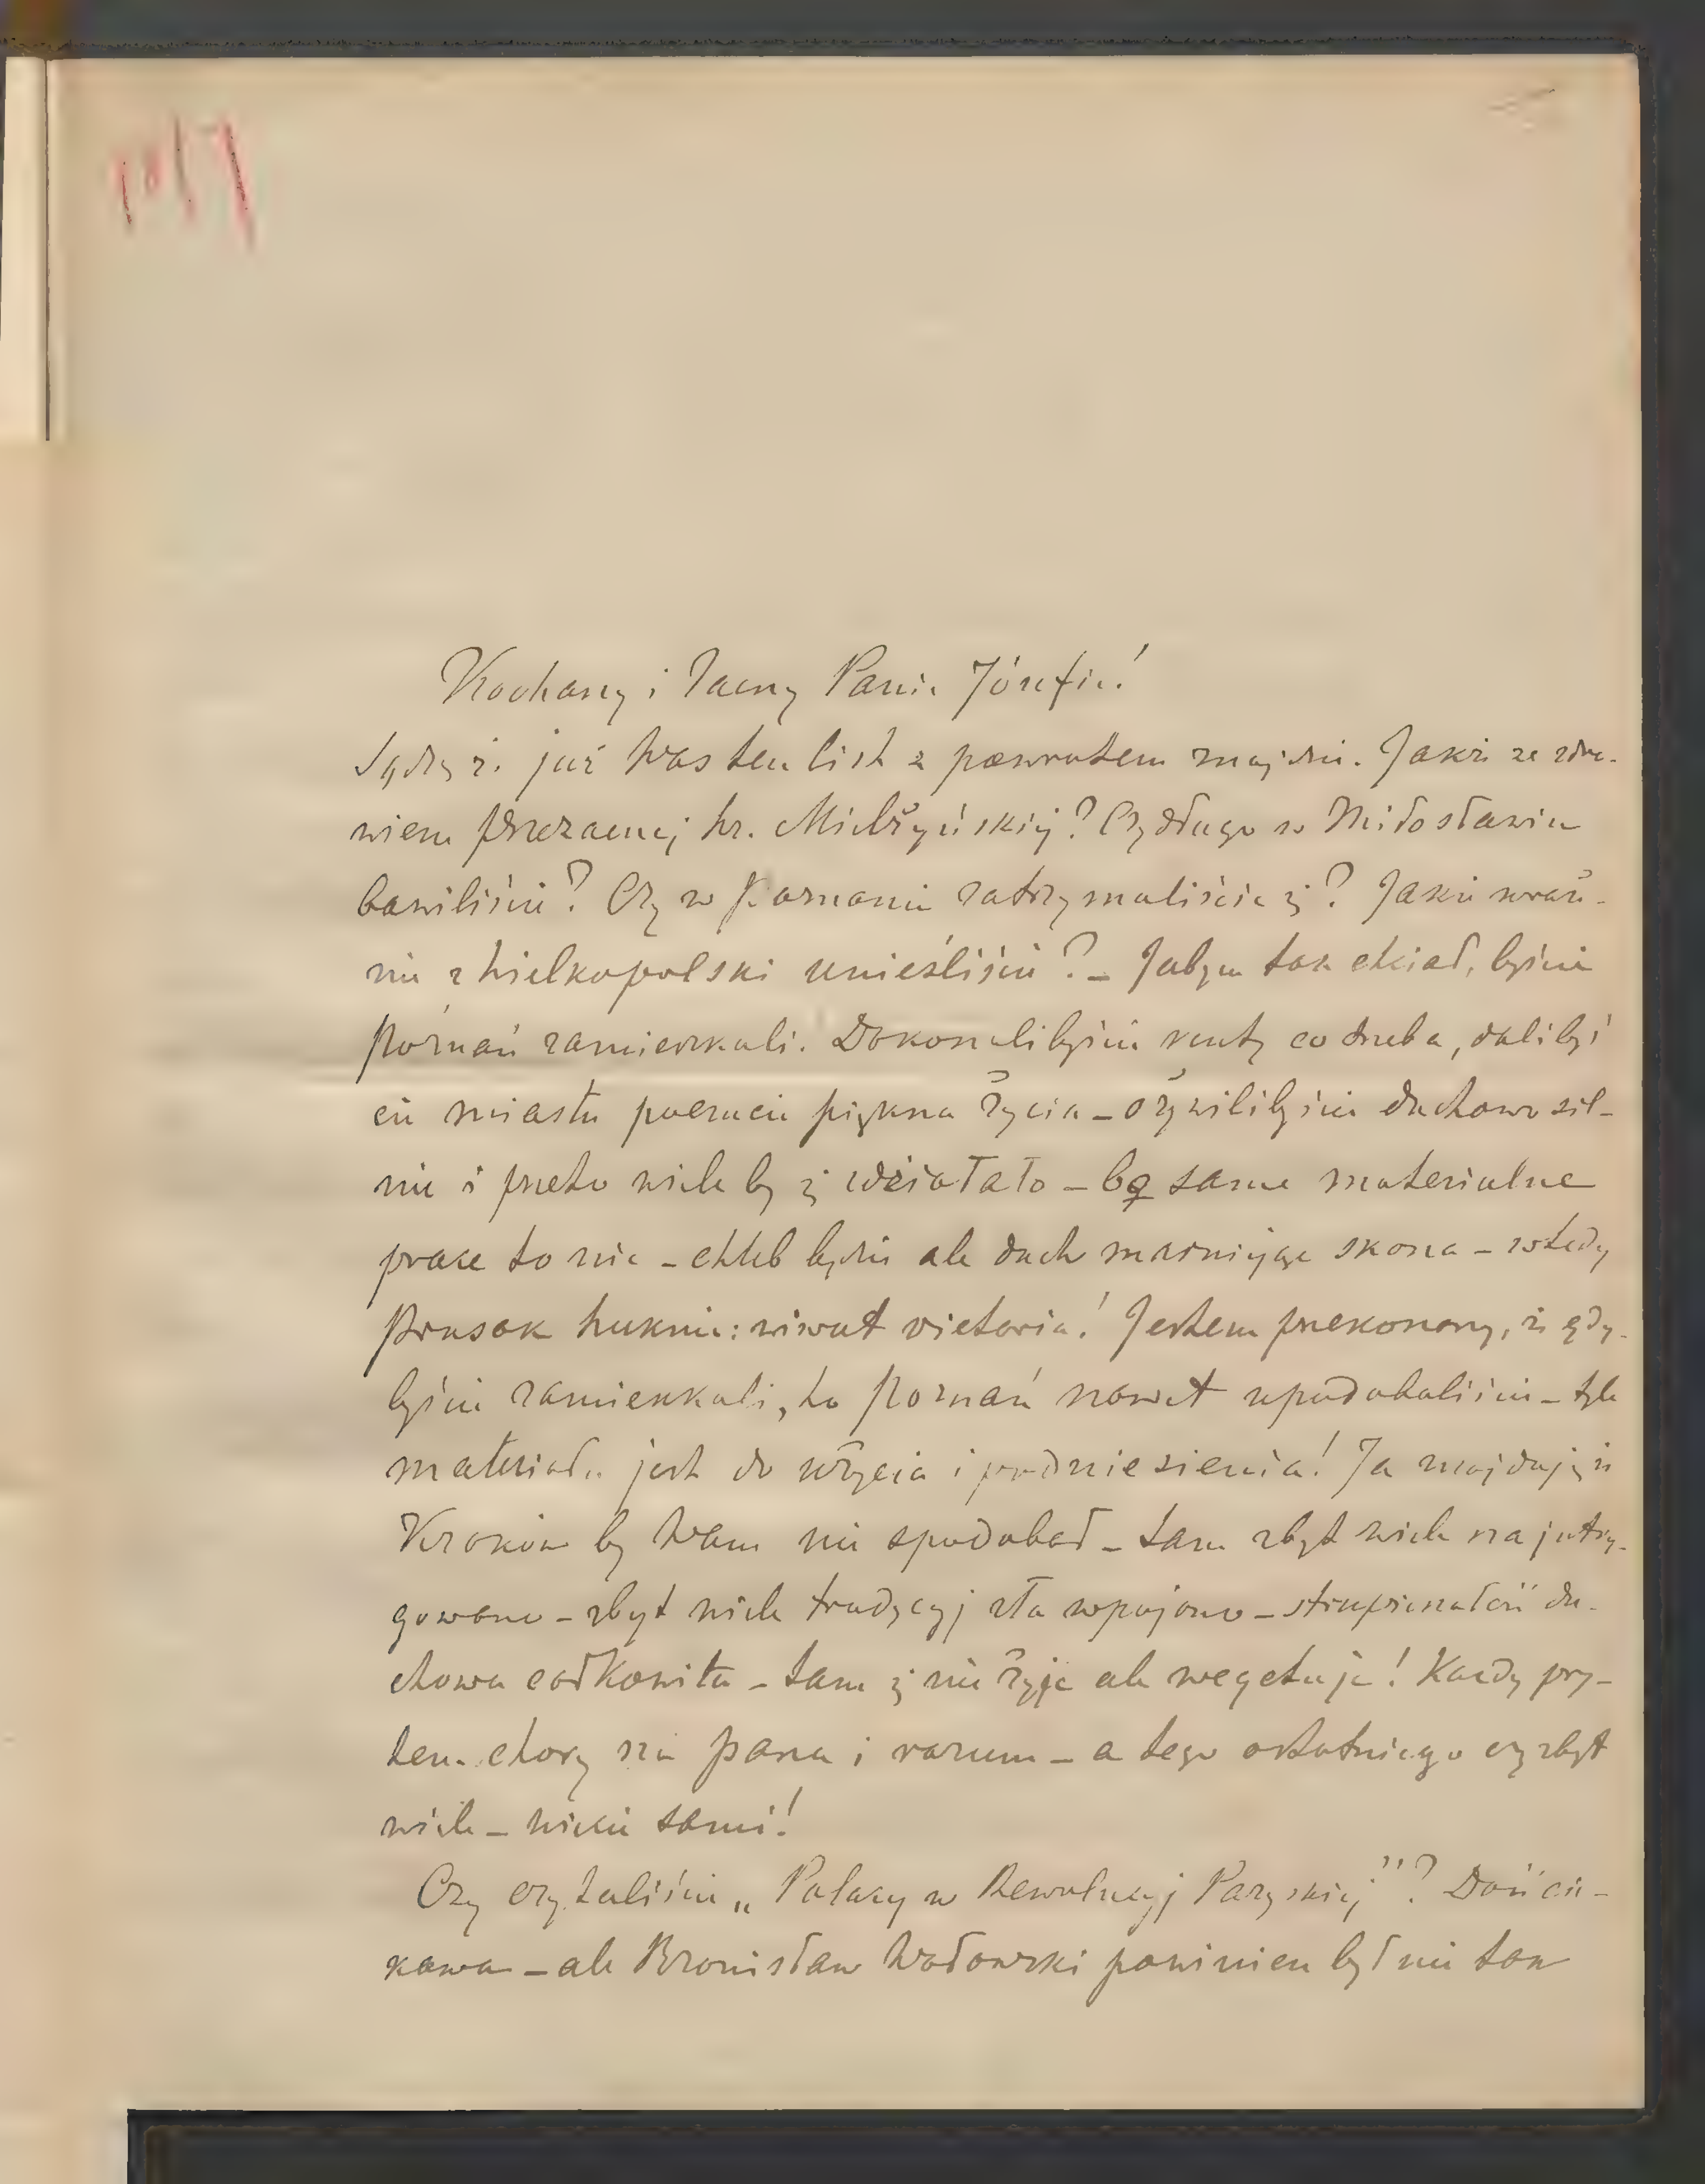 Kochany i Zacny Panie Józefie!
Sądzę że już Was ten list z powrotem znajdzie. Jakże ze zdro-
wiem przezacnej hr. Mielżyńskiej? Czy długo w Miłosławiu
bawiliście? Czy w Poznaniu zatrzymaliście się? Jakie wraże-
nie z Wielkopolski unieśliście? – Jabym tak chciał, byście
Poznań zamieszkali. Dokonalibyście reszty co trzeba, dalibyś
cie miastu poczucie piękna życia – ożywilibyście duchowo sil-
nie i przeto wiele by się zdziałało – bo same materialne
prace to nic – chleb będzie ale duch marniejąc skona – wtedy
Prusak huknie: wiwat victoria! Jestem przekonany, że gdy-
byście zamieszkali, to Poznań nawet upodobaliście – tyle
materiału jest do użycia i podniesienia! Ja znajduję że
Kraków by Wam nie spodobał – tam zbyt wiele zajutrzy-
gowano – zbyt wiele tradycyj zła wpojono – strupieszałość du-
chowa całkowita – tam się nie żyje ale wegetuje! Każdy przy-
tem chory na pana i rozum – a tego ostatniego czy zbyt
wiele – wiecie sami!
Czy czytaliście „Polacy w Rewolucyj Paryskiej"? Dość cie-
kawa – ale Bronisław Wołowski powinien był nie tak